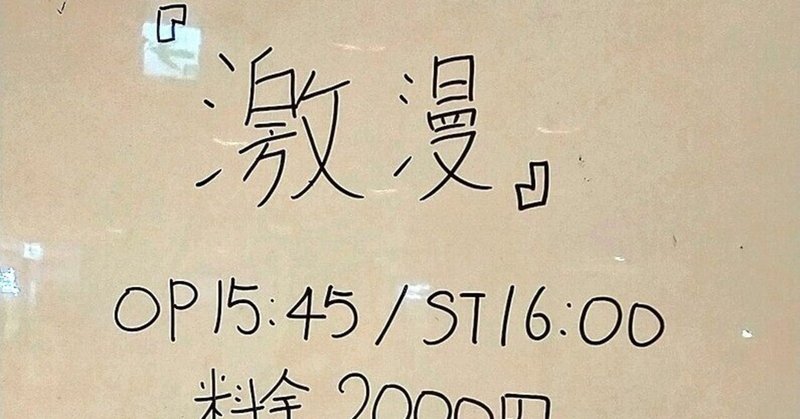 『激漫』
OP15:45/ST16:00
料金2000円